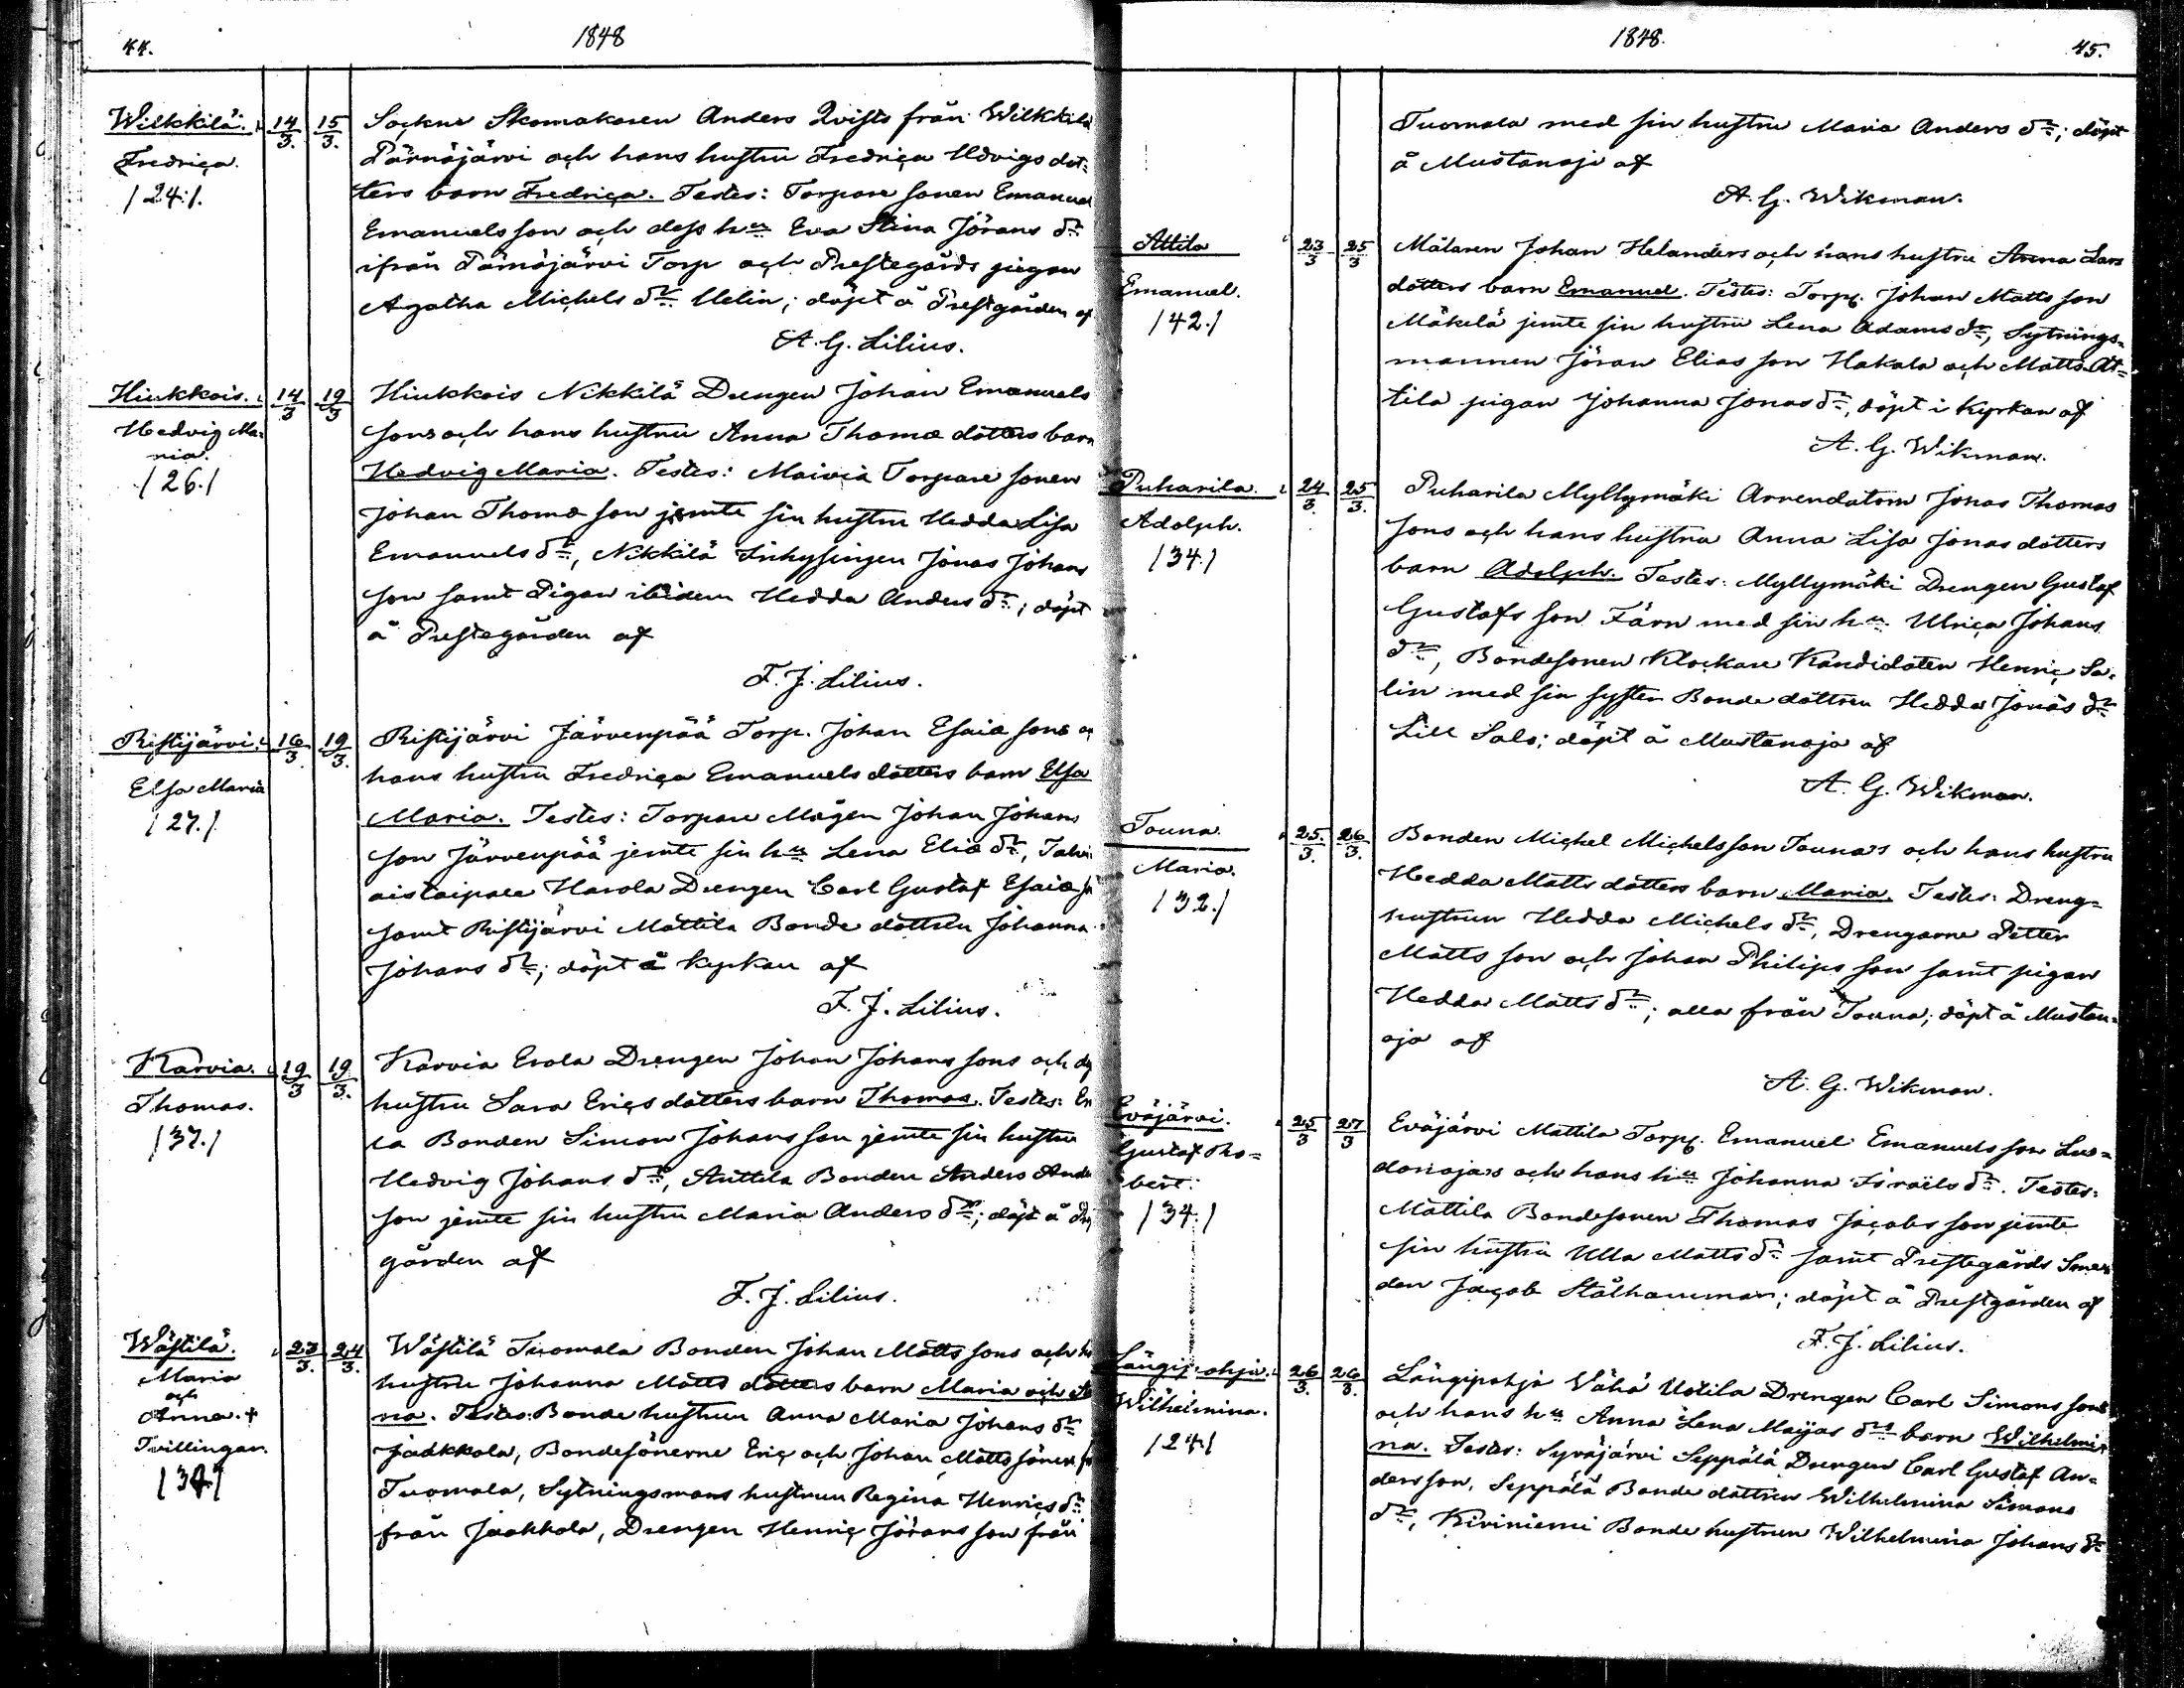 44.
1848
Wilkkilä.
Fredrica.
/24./.
14/3.
15/3.
Sockne Skomakaren Anders Qvists från Wilkkilä
Pärnäjärvi och hans hustru Fredrica Udvigs dot=
ters barn Fredrica. Testes: Torpare sonen Emanuel
Emanuels son och dess hu Eva Stina Jörans dr
ifrån Pärnäjärvi Torp och Prestegårds pigan
Agatha Michels dr Melin; döpt å Prestgården af
A. G. Lilius.
Hiukkois.
Hedvig Ma=
ria.
/26./
14/3
19/3
Hiukkois Nikkilä Drengen Johan Emanuels
sons och hans hustru Anna Thomæ dotters barn
Hedvig Maria. Testes: Torpare sonen
Johan Thomæ son jemte sin hustru Hedda Lisa
Emanuels dr, Nikkilä Inhysingen Jonas Johans
son samt Pigan ibidem Hedda Anders dr; döpt
å Prestegården af
F. J. Lilius.
Ristijärvi.
Elsa Maria
/27./
16/3
19/3.
Ristijärvi Järvenpää Torp. Johan Esaiæ sons o
hans hustru Fredrica Emanuels dotters barn Elsa
Maria. Testes: Torpare Mågen Johan Johans
son Järvenpää jemte sin hu Lena Eliæ dr, Talvi
aistaipale Harola Drengen Carl Gustaf Esaiæ
samt Ristijärvi Mattila Bonde dottren Johanna
Johans dr; döpt å kyrkan af
F. J. Lilius.
Karvia.
Thomas.
/37./
19/3
19/3.
Karvia Erola Drengen Johan Johans sons och
hustru Sara Erics dotters barn Thomas. Testes: Er
la Bonden Simon Johans son jemte sin hustru
Hedvig Johans dr, Anttila Bonden Anders Ande
son jemte sin hustru Maria Anders dr; döpt å
gården af
F. J. Lilius.
Wästilä.
Maria
och
Anna. +
Tvillingar.
/34/
23/3.
24/3.
Wästilä Tuomala Bonden Johan Matts sons och h
hustru Johanna Matts dotters barn Maria och
na. Testes: Bonde hustrun Anna Maria Johans dr
Jaakkola, Bondesönerne Eric och Johan Matts söner
Tuomala, Sytningsmans hustrun Regina Henrics dr
från Jaakkola, Drengen Henric Jörans son från
1848.
45.
Tuomala med sin hustru Maria Anders dr; döpt
å Mustanoja af
A. G. Wikman.
Attila
Emanuel.
/42./
23/3
25/3
Målaren Johan Helanders och hans hustru Anna Lars
dotters barn Emanuel. Testes: Torp. Johan Matts son
Mäkelä jemte sin hustru Lena Adams dr, Sytnings=
mannen Jöran Elias son Hakala och Matts At=
tila pigan Johanna Jonas dr, döpt i kyrkan af
A. G. Wikman.
Puharila.
Adolph.
/34./
24/3.
25/3.
Puharila Myllymäki Arrendatorn Jonas Thomas
sons och hans hustru Anna Lisa Jonas dotters
barn Adolph. Testes: Myllymäki Drengen Gustaf
Gustafs son Färn med sin hu Ulrica Johans
dr, Bondesonen Klockare Kandidaten Henric Sa=
lin med sin syster Bonde dottren Hedda Jonas dr
Lill Salo; döpt å Mustanoja af
A. G. Wikman.
Touna.
Maria.
/32./
25/3.
26/3.
Bonden Michel Michelsson Tounas och hans hustru
Hedda Matts dotters barn Maria. Testes: Dreng=
hustrun Hedda Michels dr, Drengarne Petter
Matts son och Johan Philips son samt pigan
Hedda Matts dr; alla från Touna; döpt å Mustan=
oja af
A. G. Wikman.
Eväjärvi.
Gustaf Ro=
bert.
/34./
25/3
27/3
Eväjärvi Mattila Torp. Emanuel Emanuels son Luo=
donojas och hans hu Johanna Israels dr. Testes:
Mattila Bondesonen Thomas Jacobs son jemte
sin hustru Ulla Matts dr samt Prestegårds Sme
den Jacob Stålhammar; döpt å Prestgården af
F. J. Lilius.
Längipohja.
Wilhelmina.
/24/
26/3.
26/3.
Längipohja Vähä Uotila Drengen Carl Simons sons
och hans hu Anna Lena Maijas drs barn Wilhelmi=
na. Testes: Syväjärvi Seppälä Drengen Carl Gustaf An=
dersson, Seppälä Bonde dottren Wilhelmina Simons
dr, Kiviniemi Bonde hustrun Wilhelmina Johans dr